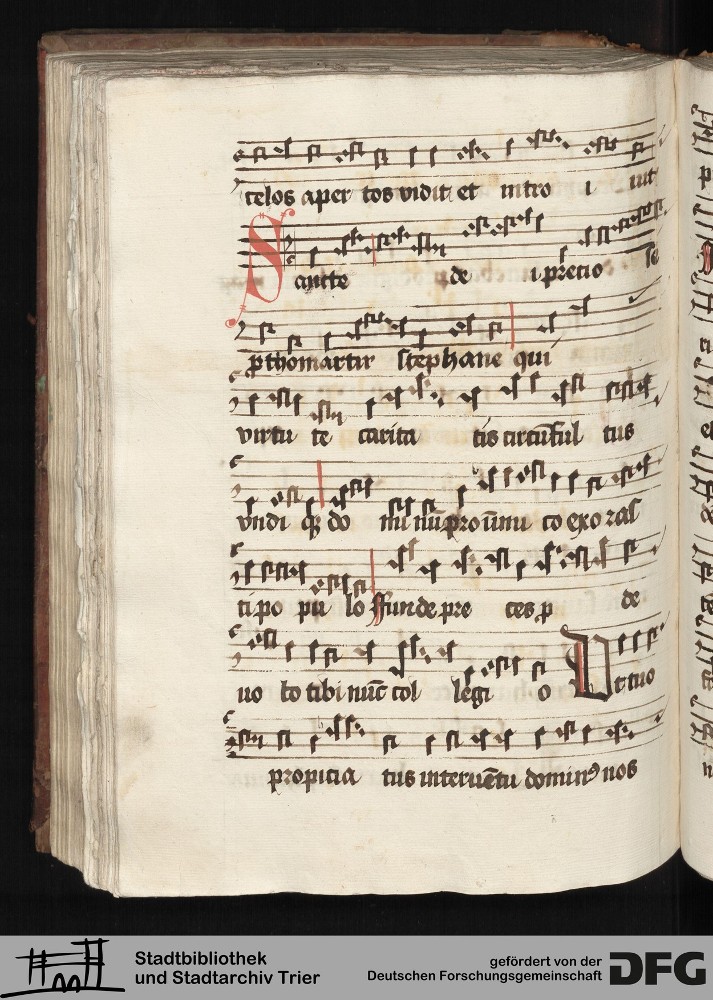 celos aper tos vidit et intro i uit
Sancte de i precio se
prothomartir stephane qui
virtu te carita tis circũful tus
vndi qz do mi nũ pro inimi co exoras
ti po pu lo ffunde pre ces p de
uo to tibi nũc col legi o Ut tuo
propicia tus interuẽtu dominꝰ nos
Stadtbibliothek
und Stadtarchiv Trier
gefördert von der
Deutschen Forschungsgemeinschaft
DFG